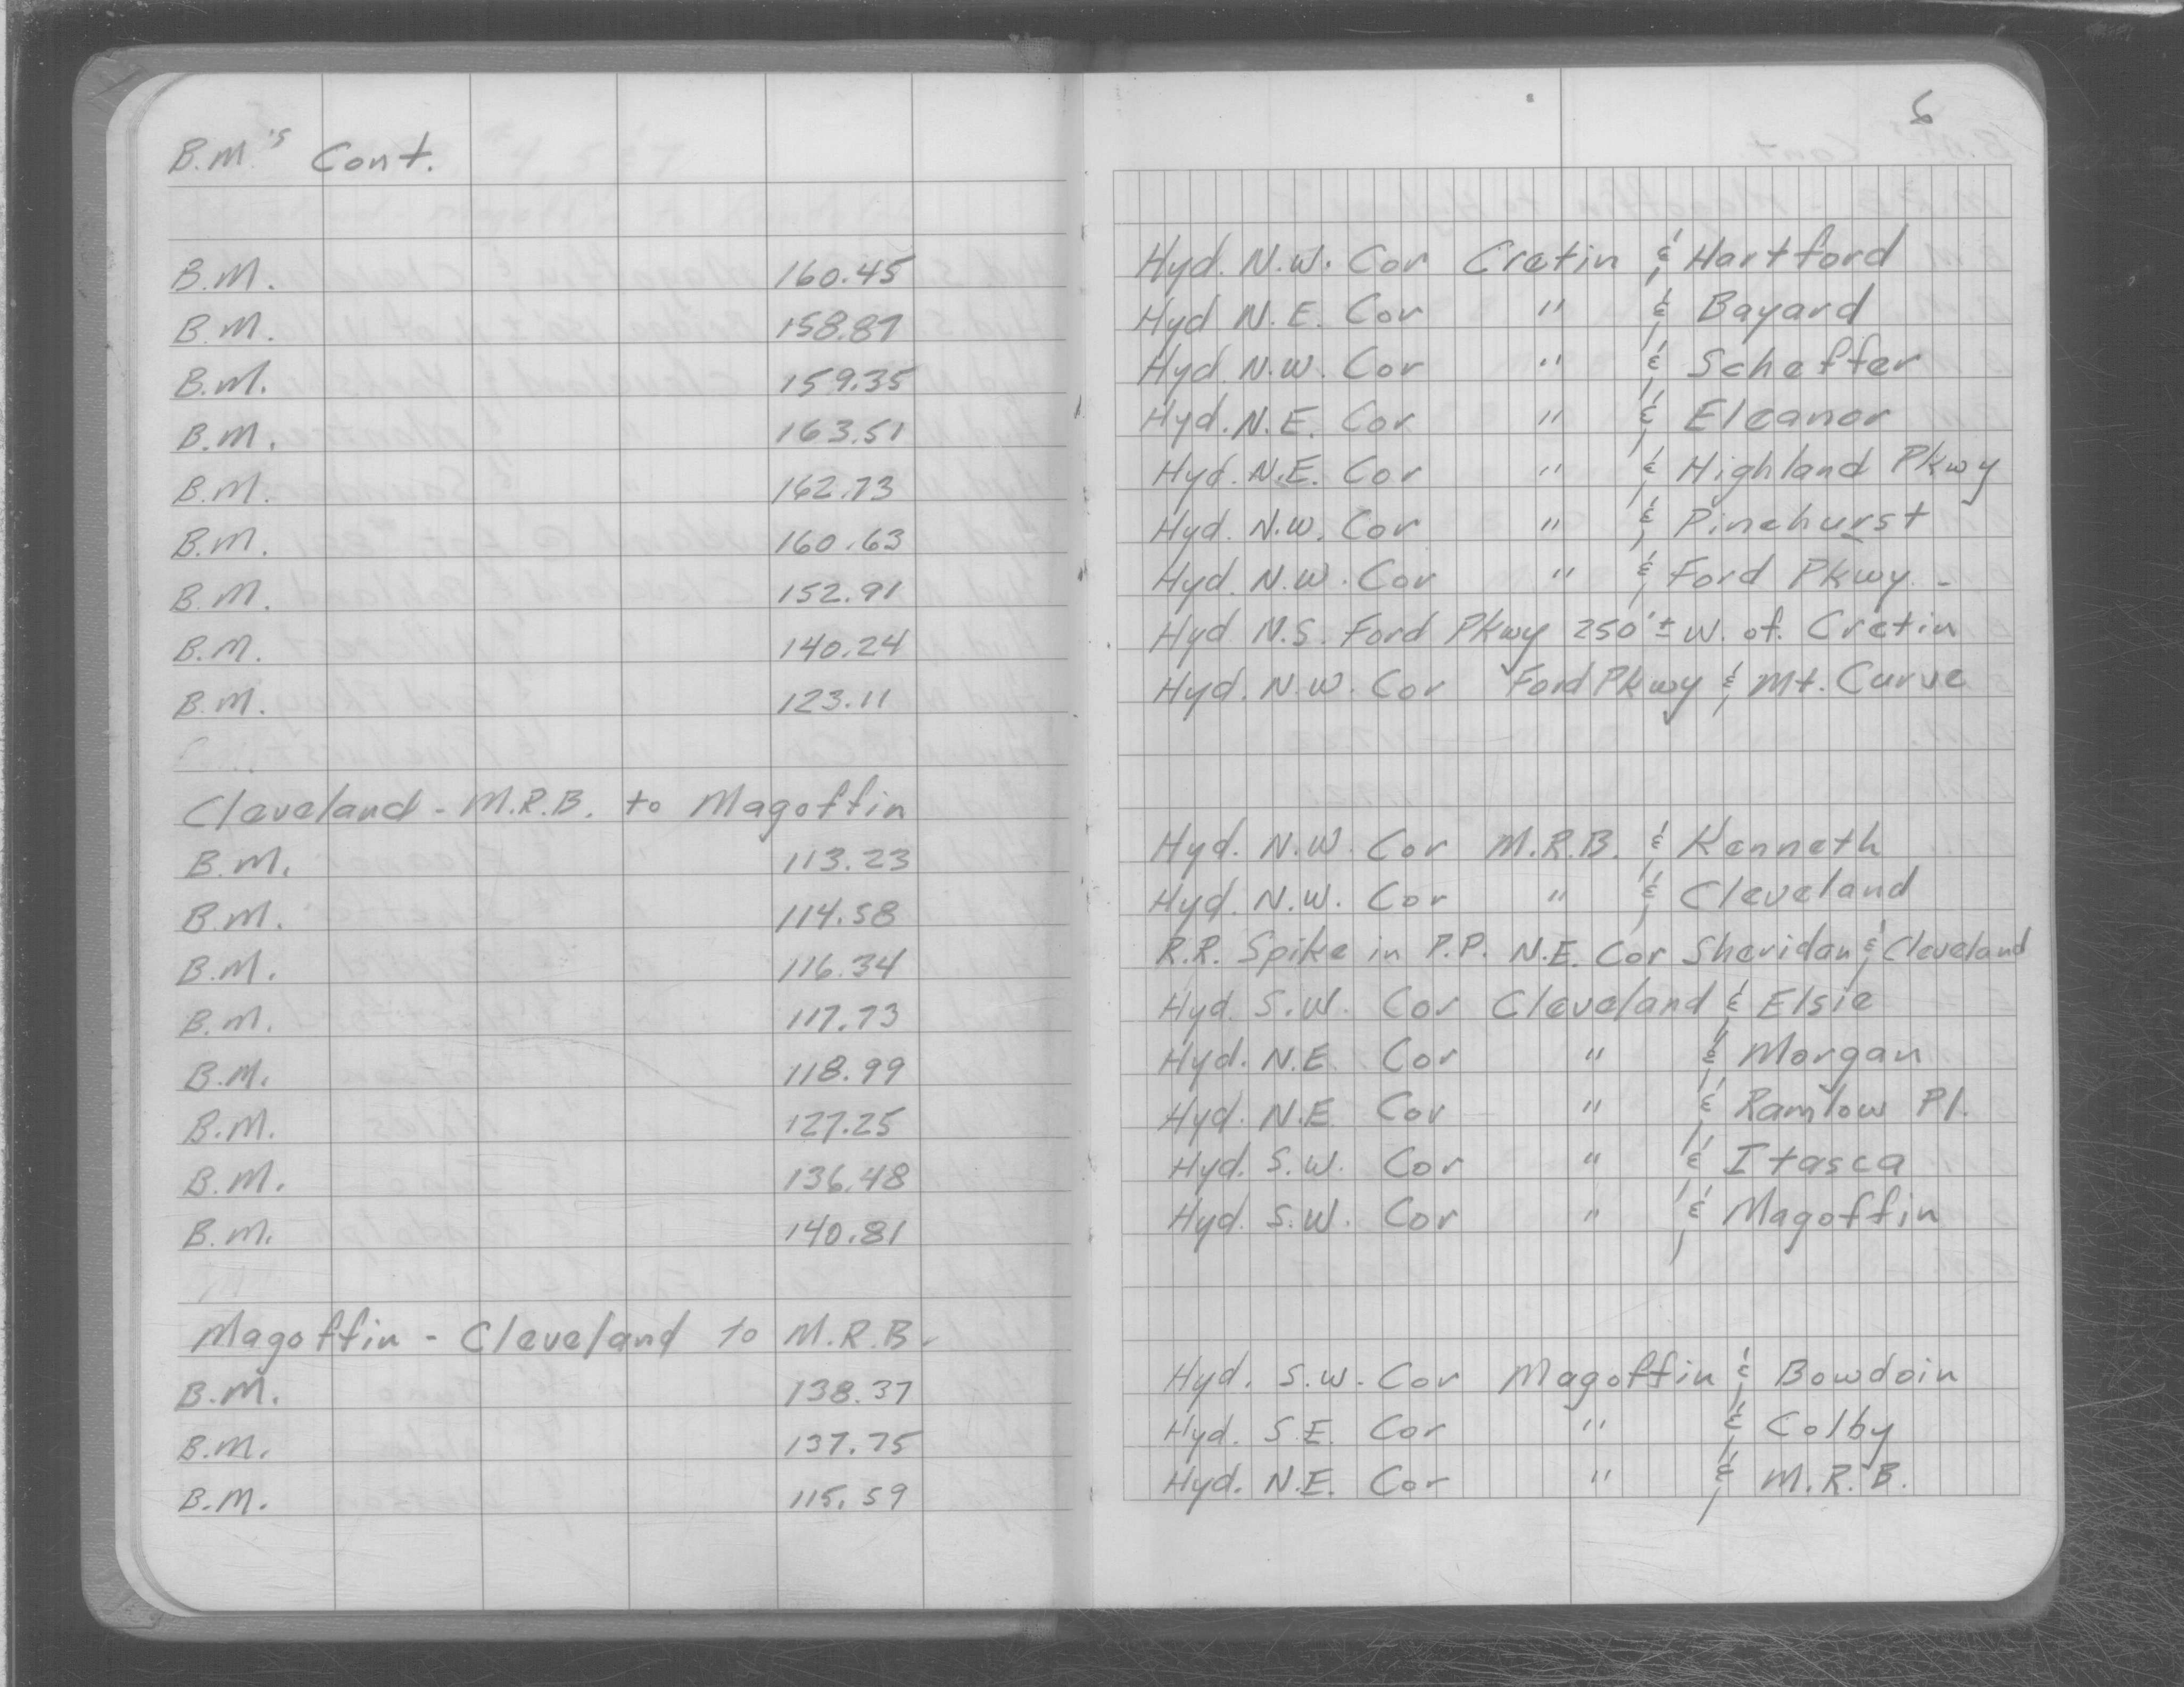 6
B.M.'s Cont.
B.M. 160.45 Hyd. N.W. Cor Cretin & Hartford
B.M. 158.87 Hyd N.E. Cor " & Bayard
B.M. 159.35 Hyd. N.W. Cor " & Scheffer
B.M. 163.51 Hyd. N.E. Cor " & Eleanor
B.M. 162.73 Hyd. N.E. Cor " & Highland Pkwy
B.M. 160.63 Hyd. N.W. Cor " & Pinehurst
B.M. 152.91 Hyd. N.W. Cor " & Ford Pkwy.
B.M. 140.24 Hyd. N.S. Ford Pkwy 250'± W. of. Cretin
B.M. 123.11 Hyd. N.W. Cor Ford Pkwy & Mt. Curve
Cleveland - M.R.B. to Magoffin
B.M. 113.23 Hyd. N.W. Cor M.R.B. & Kenneth
B.M. 114.58 Hyd. N.W. Cor " & Cleveland
B.M. 116.34 R.R. Spike in P.P. N.E. Cor Sheridan & Cleveland
B.M. 117.73 Hyd. S.W. Cor Cleveland & Elsie
B.M. 118.99 Hyd. N.E. Cor " & Morgan
B.M. 127.25 Hyd. N.E. Cor " & Ramlow Pl.
B.M. 136.48 Hyd. S.W. Cor " & Itasca
B.M. 140.81 Hyd. S.W. Cor " & Magoffin
Magoffin - Cleveland to M.R.B.
B.M. 138.37 Hyd. S.W. Cor Magoffin & Bowdoin
B.M. 137.75 Hyd. S.E. Cor " & Colby
B.M. 115.59 Hyd. N.E. Cor " & M.R.B.